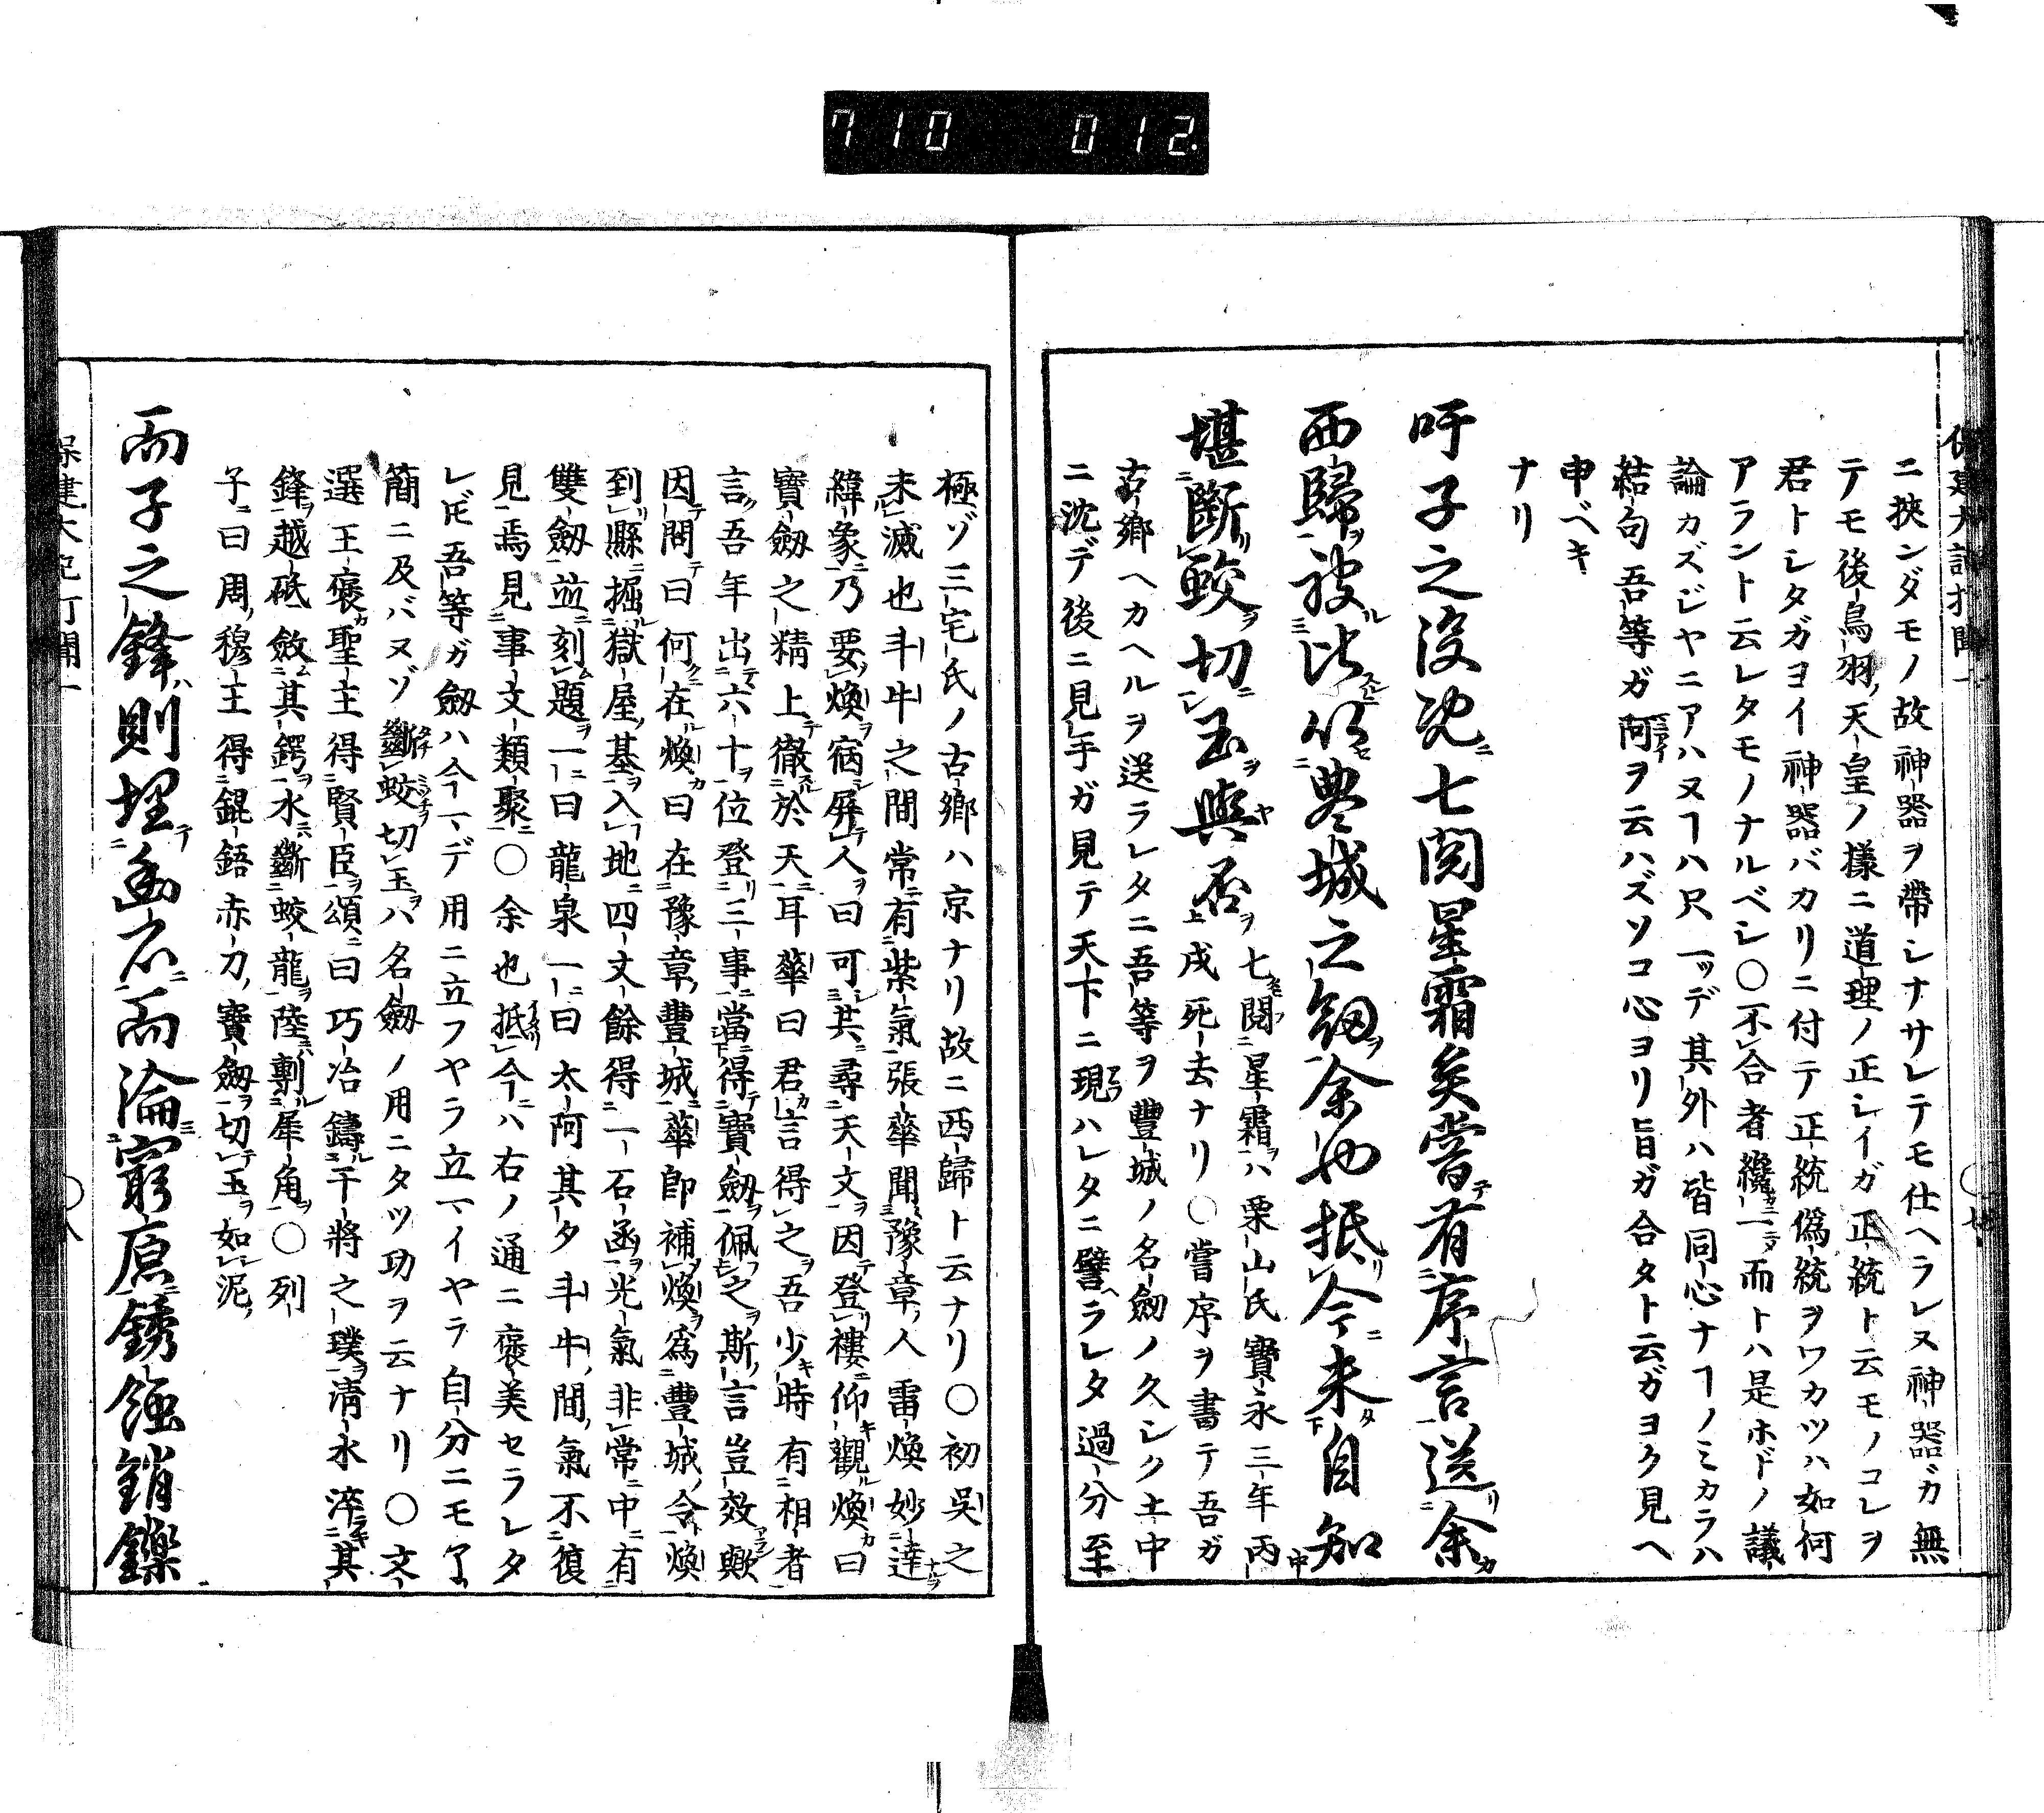 710 012.
保建大記打聞一 〇七
ニ挾ンダモノ故神器ヲ帶シナサレテモ仕ヘラレヌ神器ガ無
テモ後鳥羽ノ天皇ノ樣ニ道理ノ正シイガ正統ト云モノコレヲ
君トシタガヨイ神器バカリニ付テ正統僞統ヲワカツハ如何
アラント云レタモノナルベシ〇不合者纔一二而トハ是ホドノ議
論カズジヤニアハヌヿハ只一ツデ其外ハ皆同心ナヿノミカラハ
結句吾等ガ阿ヲ云ハズソコ心ヨリ旨ガ合タト云ガヨク見ヘ
申ベキ
ナリ
吁子之沒已七閲星霜矣嘗有序言送余
西歸被比以豊城之劔余也抵今未自知
堪斷鮫切玉與否 七閲星霜ハ栗山氏寶永三年丙
戌死去ナリ〇嘗序ヲ書テ吾ガ
古鄉ヘカヘルヲ送ラレタニ吾等ヲ豐城ノ名劔ノ久シク土中
ニ沈デ後ニ見手ガ見テ天下ニ現ハレタニ譬ラレタ過分至
極ゾ三宅氏ノ古鄉ハ京ナリ故ニ西歸ト云ナリ〇初吳之
未滅也斗牛之間常有紫氣張華聞豫章人雷煥妙達
緯象乃要煥宿屏人曰可共尋天文因登樓仰觀煥曰
寶劔之精上徹於天耳華曰君言得之吾少時有相者
言吾年出六十位登三事當得寶劔佩之斯言豈效歟
因問曰何在煥曰在豫章豐城華卽補煥爲豐城令煥
到縣掘獄屋基入地四丈餘得一石函光氣非常中有
雙劔並刻題一曰龍泉一曰太阿其夕斗牛間氣不復
見焉見事文類聚〇余也抵今ハ右ノ通ニ褒美セラレタ
レドモ吾等ガ劔ハ今マデ用ニ立フヤラ立マイヤラ自分ニモ了
簡ニ及バヌゾ斷蛟切玉ハ名劔ノ用ニタツ功ヲ云ナリ〇文
選王褒聖主得賢臣頌曰巧冶鑄干將之璞淸水淬其
鋒越砥斂其鍔水斷蛟龍陸剸犀角〇列
子曰周穆王得錕鋙赤刀寶劔切玉如泥
而子之鋒則埋幽石而淪窮原銹蝕銷鑠
保建大記打聞一 〇八